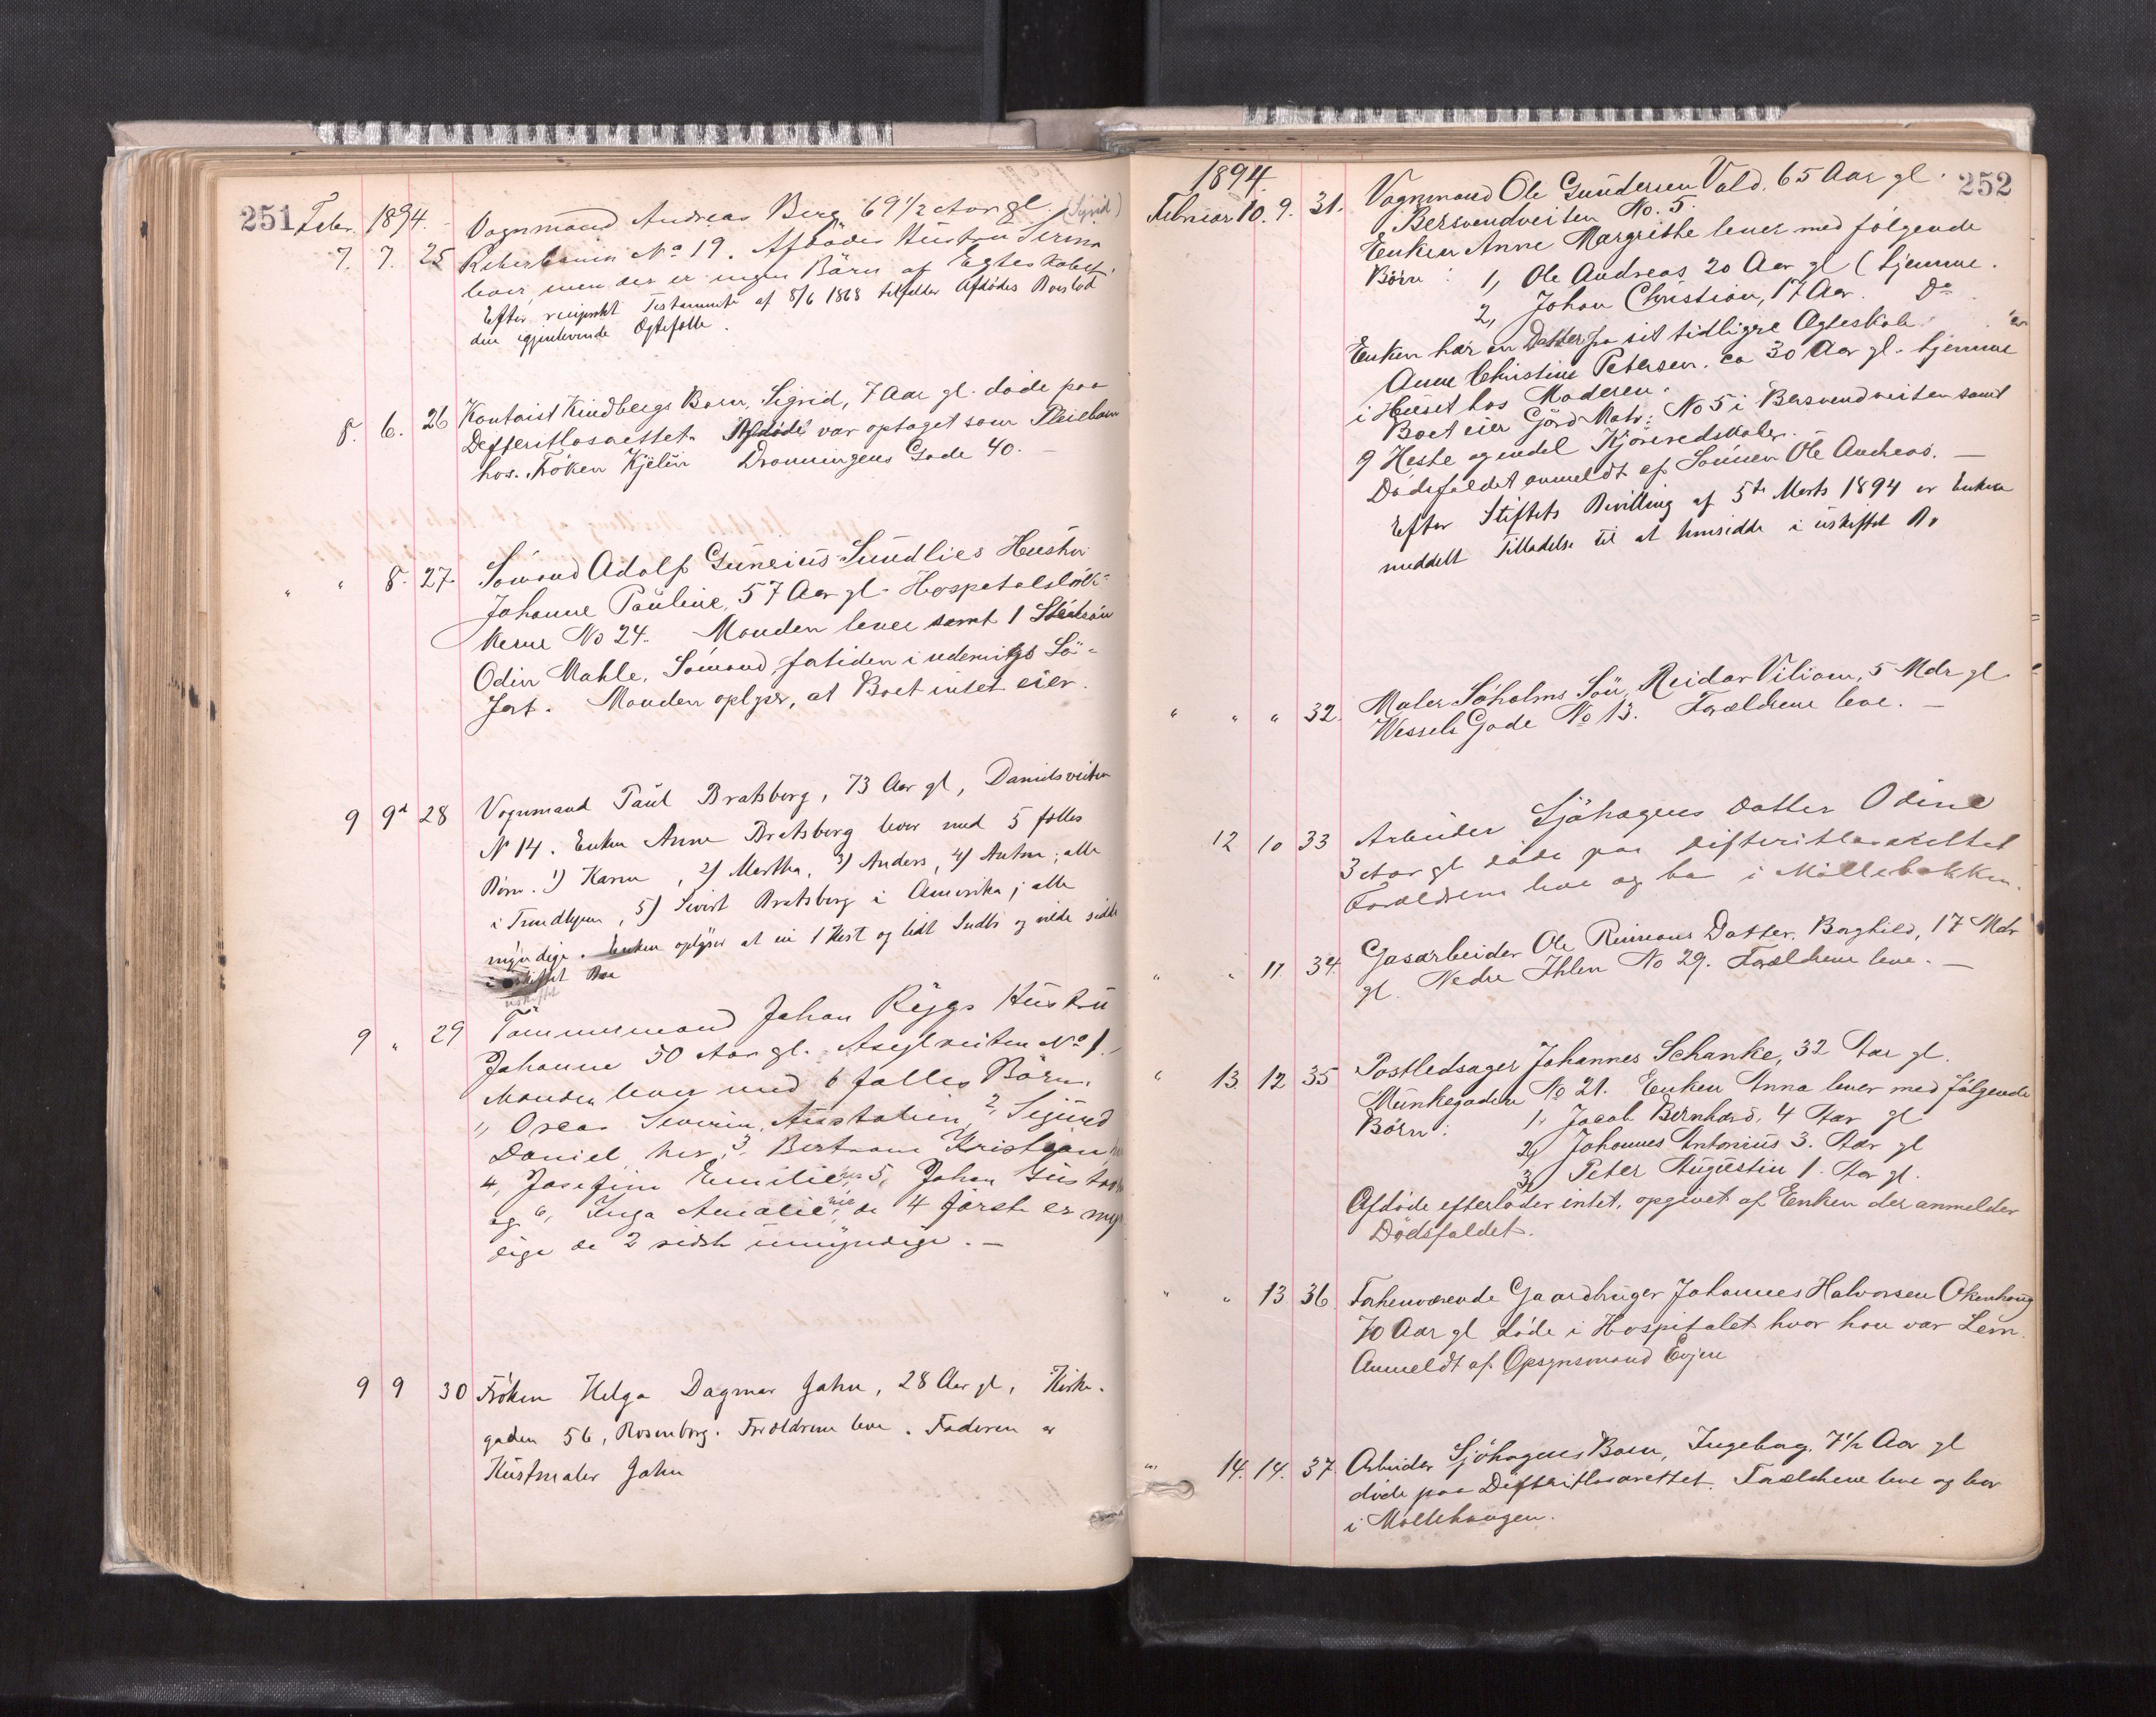 251 Febr. 1894.
7. 7. 25 Vognmand Andreas Berg, 69 1/2 Aar gl. (Sigrid)
No 19. Afdödes Hustru Serina
lever men der er ingen Börn af Egteskabet.
Efter reciprokt Testamente af 8/6 1868 tilfalder Afdødes Boeslod
den igjenlevende Ægtefælle.
8. 6. 26 Kontorist Kindbergs Barn, Sigrid, 7 Aar gl. døde paa
Afdöde var optaget som Pleiebarn
hos Fröken Kjelin Dronningens Gade 40. —
" " 8. 27. Sömand Adolf Gunerius Sundlies Hustru
Johanne Pauline, 57 Aar gl. Hospitalslök-
kerne No 24. Manden lever samt 1
Odin Mahle, Sömand fortiden i udenrigs Sö-
fart. Manden oplyser, at Boet intet eier.
9 9d 28 Vognmand Paul Bratsberg, 73 Aar gl, Danielsveiten
N 14. Enken Anne Bratsberg lever med 5 fælles
Børn. 1) Karen, 2) Martha, 3) Anders, 4) Anton; alle
i Trondhjem, 5) Sivert Bratsberg i Amerika; alle
myndige. Enken oplyser at eie 1 Hest og lidt Indbo og vilde sidde
i uskiftet Bo
uskiftet
9 " 29 Tömmermand Johan Rygs Hustru
Johanne 50 Aar gl. Asylveiten No 1. —
Manden lever med 6 fælles Börn.
1, Oscar Severin, 2, Sigurd
Daniel her, 3, Bertram Kristian
4, Josefine Emilie 5, Johan Gustav
og 6, Inga Amalie de 4 förste er myn
dige de 2 sidste umyndige. —
9 9 30 Frøken Helga Dagmar Jahn, 28 Aar gl, Kirke-
gaden 56, Rosenborg. Forældrene leve. Faderen er
Jahn
1894. 252
Februar 10. 9. 31. Vognmand Ole Gundersen Vold. 65 Aar gl.
Bersvendveiten No. 5.
Enken Anne Margrethe lever med følgende
Börn: 1, Ole Andreas 20 Aar gl (hjemme.
2, Johan Christian, 17 Aar. Do
Enken har en Datter fra sit tidligere Ægteskab
Anne Christine Petersen. ca 30 Aar gl. hjemme
i Huset hos Moderen.
Boet eier Gård Matr: No 5 i Bersvendveiten samt
9 Heste og endel Kjöreredskaber.
Dödsfaldet anmeldt af Sønnen Ole Andreas. —
Efter Stiftets Bevilling af 5te Marts 1894 er Enken
meddelt Tilladelse til at hensidde i uskiftet Bo
" " " 32. Maler Söholms Sön, Reidar Viliam, 5 Mdr gl.
Wessels Gade No 13. Forældrene leve. —
12 10 33 Arbeider Sjöhagens datter Odine
3 Aar gl döde paa
Forældrene leve og bo i Möllebakken.
" " 11 34. Gasarbeider Ole Reimans Datter, Borghild, 17 Mdr
gl. Nedre Ihlen No 29. Forældrene leve. —
" 13. 12 35 Postledsager Johannes Schanke, 32 Aar gl.
Munkegaden No 21. Enken Anna lever med følgende
Börn: 1, Jacob Bernhard, 4 Aar gl
2, Johannes Antonius 3. Aar gl
3, Peter Augustin 1. Aar gl.
Afdöde efterlader intet, opgivet af Enken der anmelder
Dödsfaldet.
" " 13 36. Forhenværende Gaardbruger Johannes Halvorsen
70 Aar gl døde i Hospitalet hvor han var Lem.
Anmeldt af Opsynsmand
" 14. 14. 37. Arbeider Sjöhagens Barn, Ingeborg. 7 1/2 Aar gl
døde paa Forældrene leve og bor
i